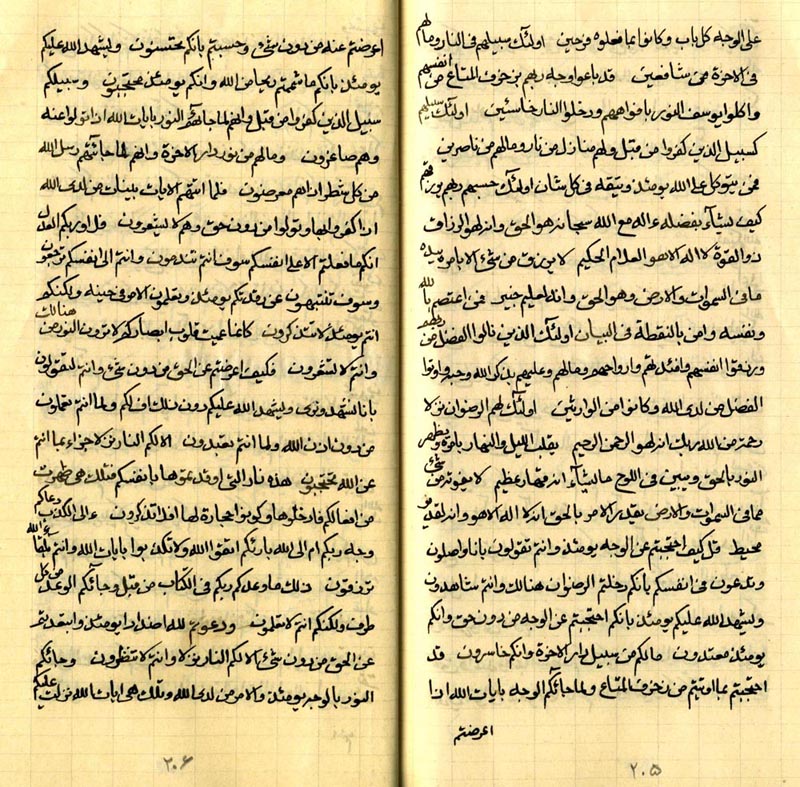 على الوجه كل باب و كانوا بما فعلوه فرحين اولئك سبيلهم فى النار و ما لهم
فى الاخرة من شافعين قد باعوا وجه ربهم بزخرف المتاع من انفسهم
و اكلوا يوسف النور بافواههم و دخلوا النار خاسئين اولئك سبيلهم
كسبيل الذين كفروا من قبل و لهم منازل من نار و ما لهم من ناصرين
فمن يتوكل على الله يومئذ و يتقه فى كل شان اولئك حسبهم ربهم يرزقهم
كيف يشآء بفضله ءاله مع الله سبحانه هو الحق و انه لهو الرزاق
ذو القوة لا اله الا هو العلام الحكيم لا من شئ الا بامره بيده
ما فى السموات و الارض و هو الحق و انه لعليم خبير فمن اعتصم بالله
و نفسه و امن بالنقطة فى البيان اولئك الذين نالوا الفضل من ربهم
و رزقوا انفسهم و افئدتهم و ارواحهم و ما لهم و عليهم بذكر الله وجه و اوتوا
الفضل من لدى الله و كانوا من الوارثين اولئك لهم الرضوان نزلا
رحمة من الله ربك انه لهو الرحمن الرحيم يقلب الليل و النهار بامره و يظهر
النور بالحق و يبين فى اللوح ما يشآء انه قهار عظيم لا يفوته من شئ
مما فى السموات و الارض يقدر الامر بالحق انه لا اله الا هو و انه لقدير
محيط قل كيف احتجبتم عن الوجه يومئذ و انتم تقولون بانا واصلون
و تدعون فى انفسكم بانكم دخلتم الرضوان هنالك و انتم شاهدون
و ليشهد الله عليكم يومئذ بانكم احتجبتم عن الوجه من دون حق و انكم
يومئذ معتدون ما لكم من سبيل دار الاخرة و انكم خاسرون قد
احتجبتم بما اوتيتم من زخرف المتاع و لما جائكم الوجه بايات الله اذا
اعرضتم
٢٠٥
اعرضتم عنه من دون شئ و حسبتم بانكم محتسنون و ليشهد الله عليكم
يومئذ بانكم ما شممتم ريحا من الله و انكم يومئذ محتجبون و سبيلكم
سبيل الذين كفروا من قبل و انهم لما جائهم النور بايات الله اذا تولوا عنه
و هم صاغرون و ما لهم من نور دار الاخرة و انهم لما جائتهم رسل الله
من كل شطر اذا هم معرضون فلما اتتهم الايات بينات من لدى الله
اذا كفروا بها و تولوا من دون حق و هم لا يشعرون قل اوربكم العدل
انكم ما فعلتم الا على انفسكم سوف انتم تندمون و انتم الى انفسكم ترجعون
و سوف تنتبهون عن رقدتكم يومئذ و تعلمون الامر فى حينه و لكنكم
انتم يومئذ لا تتذكرون كانما عميت قلوب ابصاركم لا ترون النور من هنالك
و انتم لا تشعرون فكيف اعرضتم عن الحق من دون شئ و انتم لتقولون
بانا لنشهد و نرى و ليشهد الله عليكم دون ذلك اف لكم و لما انتم تعملون
من دون اذن الله و لما انتم تعبدون الا لكم النار نزلا جزاء بما انتم
عن الله تحتجبون هذه نار التى اوقدتموها بانفسكم فتلك هى ظهرت
من افعالكم فادخلوها و كونوا حجارة لها افلا تذكرون ءالى الكذب دعاكم
وجه ربكم ام الى الله بارئكم اتقوا الله و لا تكذبوا بايات الله و انتم بلقاء الله
ترزقون ذلك ما وعدكم ربكم فى الكتاب من قبل و جائكم الوعد من كل
طرف و لكنكم انتم لا تعلمون و دعوتم لله اضدادا يومئذ و ابتعدتم
عن الحق من دون شئ الا لكم النار نزلا و انتم لا تنظرون و جائكم
النور بالوجه يومئذ و الامر من لدى الله و تلك هى ايات الله نزلت عليكم
٢٠۶